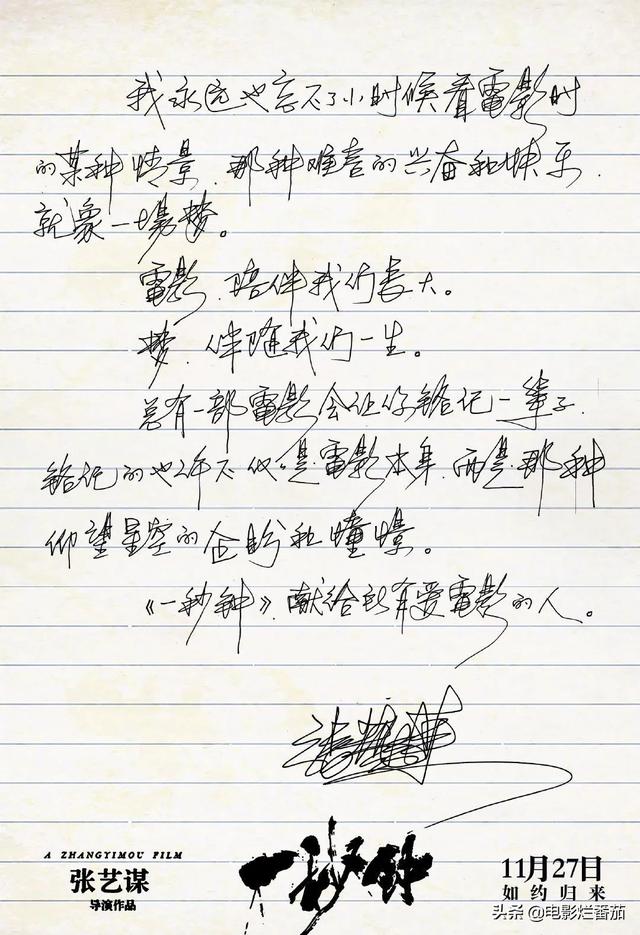 我永远也忘不了小时候看電影时
的某种情景,那种难言的兴奋和快乐,
就象一場梦。
電影,陪伴我们長大。
梦,伴随我们一生。
总有一部電影会让你銘记一辈子,
銘记的也许不仅仅是電影本身,而是那种
仰望星空的企盼和憧憬。
《一秒钟》,献给所有爱電影的人。
A ZHANGYIMOU FILM
张艺谋
导演作品
一秒钟
11月27日
如约归来
头条 @电影烂番茄